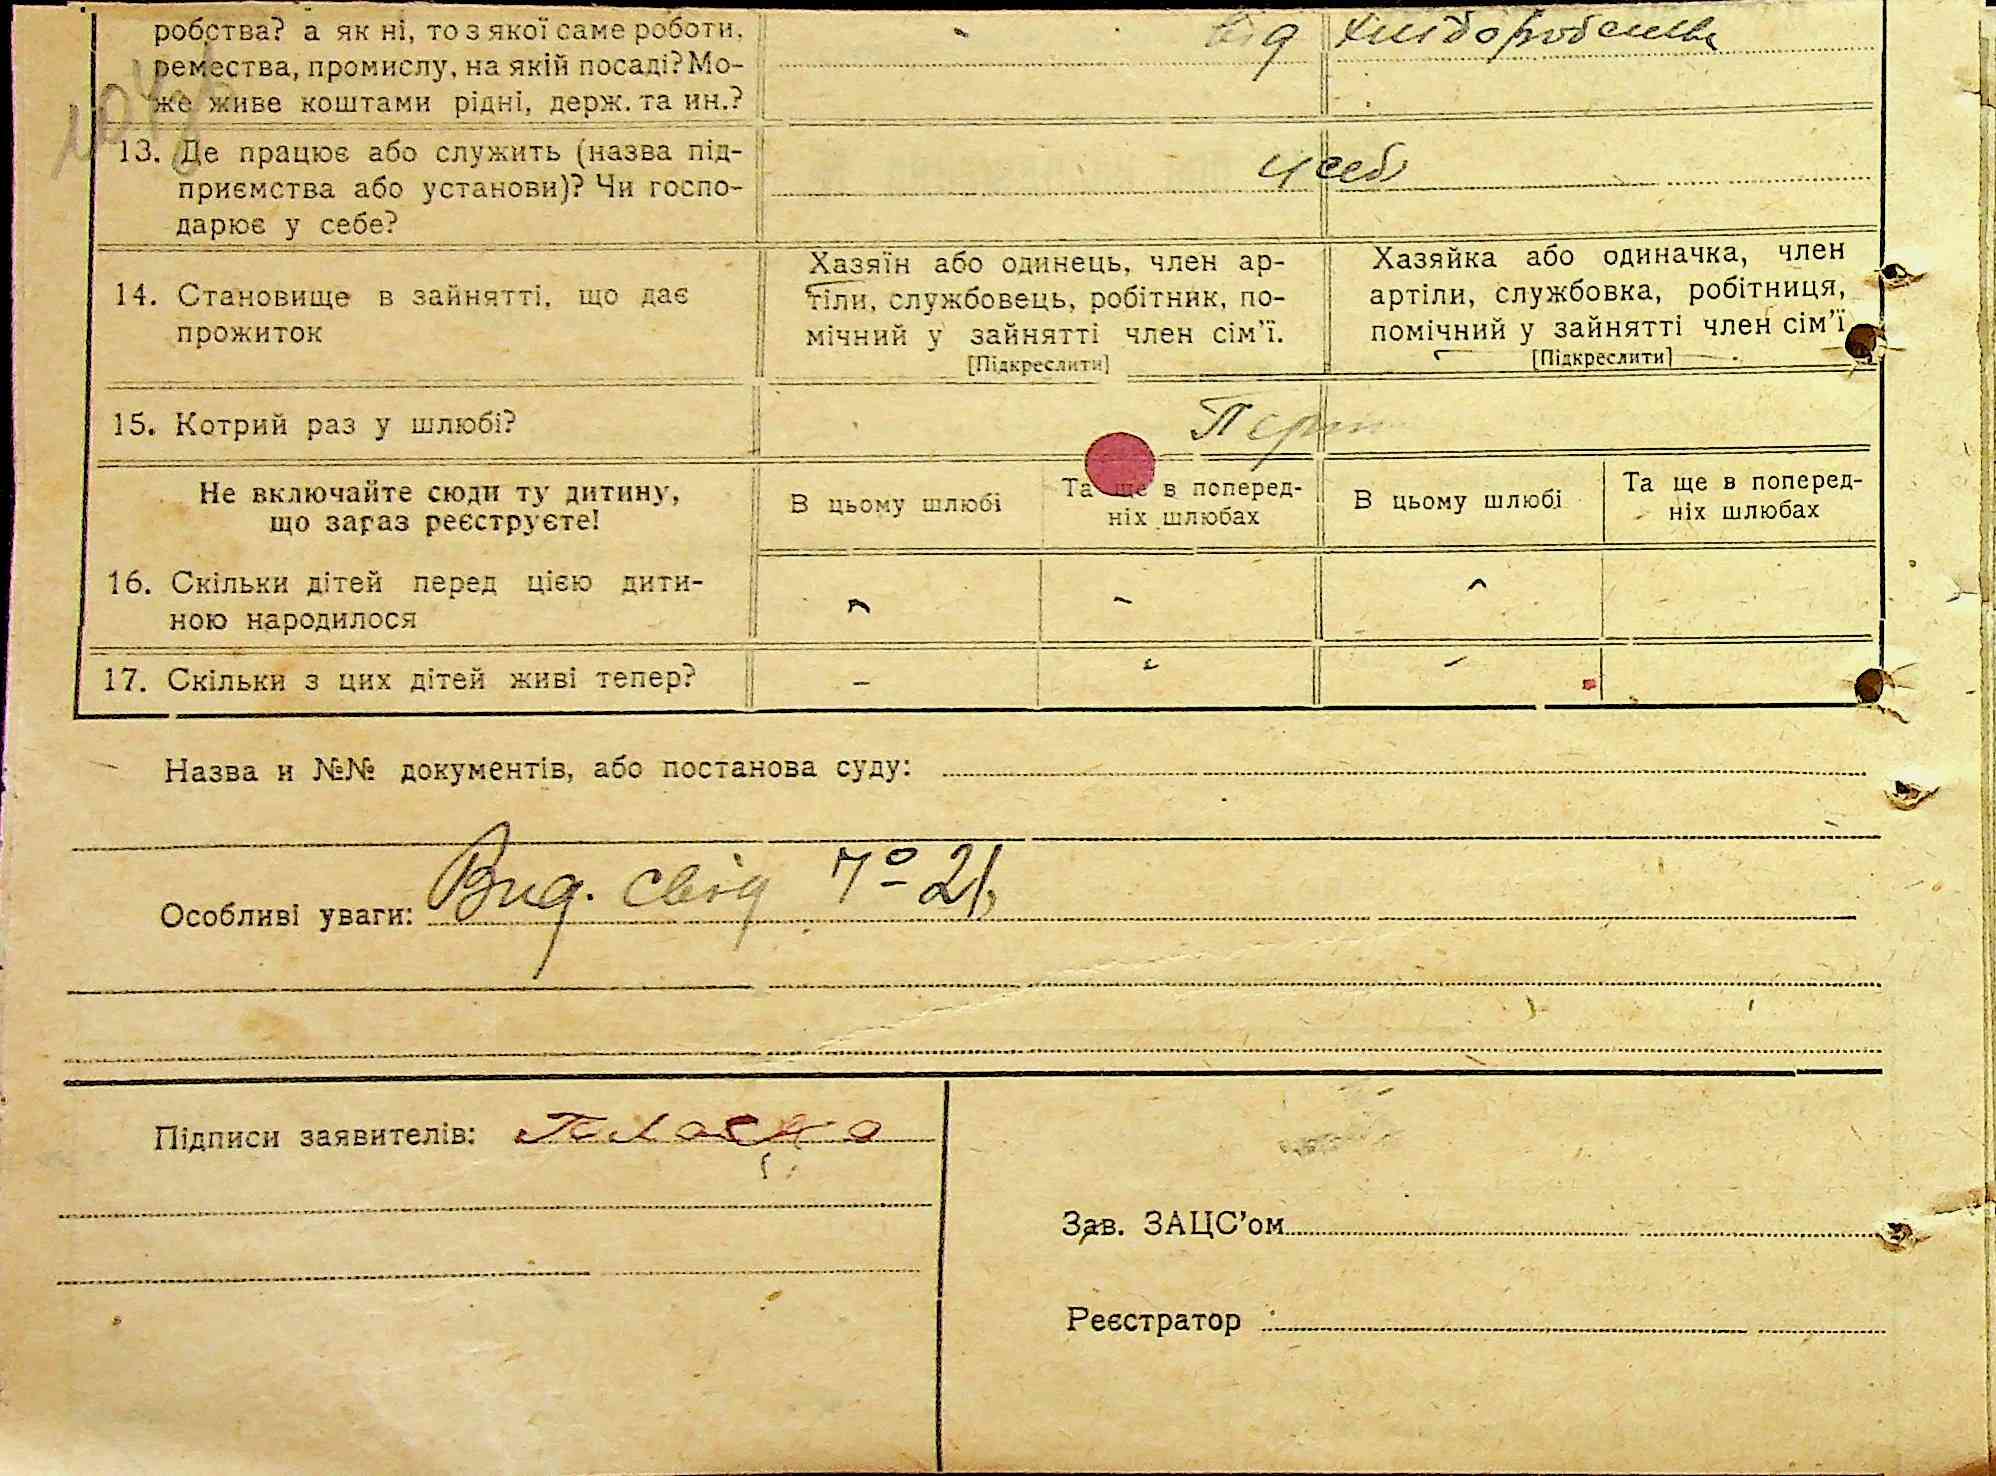 робства? а як ні, то з якої саме роботи, від хліборобства
ремества, промислу, на якій посаді? Мо-
же живе коштами рідні, держ. та ин.?
13. Де працює або служить (назва під-
приємства або установи)? Чи госпо- у себе
дарює у себе?
14. Становище в зайнятті, що дає
прожиток
Хазяїн або одинець, член ар-
тіли, службовець, робітник, по-
мічний у зайнятті член сім'ї.
[Підкреслити]
Хазяйка або одиначка, член
артіли, службовка, робітниця,
помічний у зайнятті член сім'ї
[Підкреслити]
15. Котрий раз у шлюбі?
Не включайте сюди ту дитину,
що зараз реєструєте!
В цьому шлюбі
Та ще в поперед-
ніх шлюбах
В цьому шлюбі
Та ще в поперед-
ніх шлюбах
16. Скільки дітей перед цією дити-
ною народилося
17. Скільки з цих дітей живі тепер? –
Назва и №№ документів, або постанова суду:
Особливі уваги: Вид. свід № 21
Підписи заявителів:
Зав. ЗАЦС'ом
Реєстратор